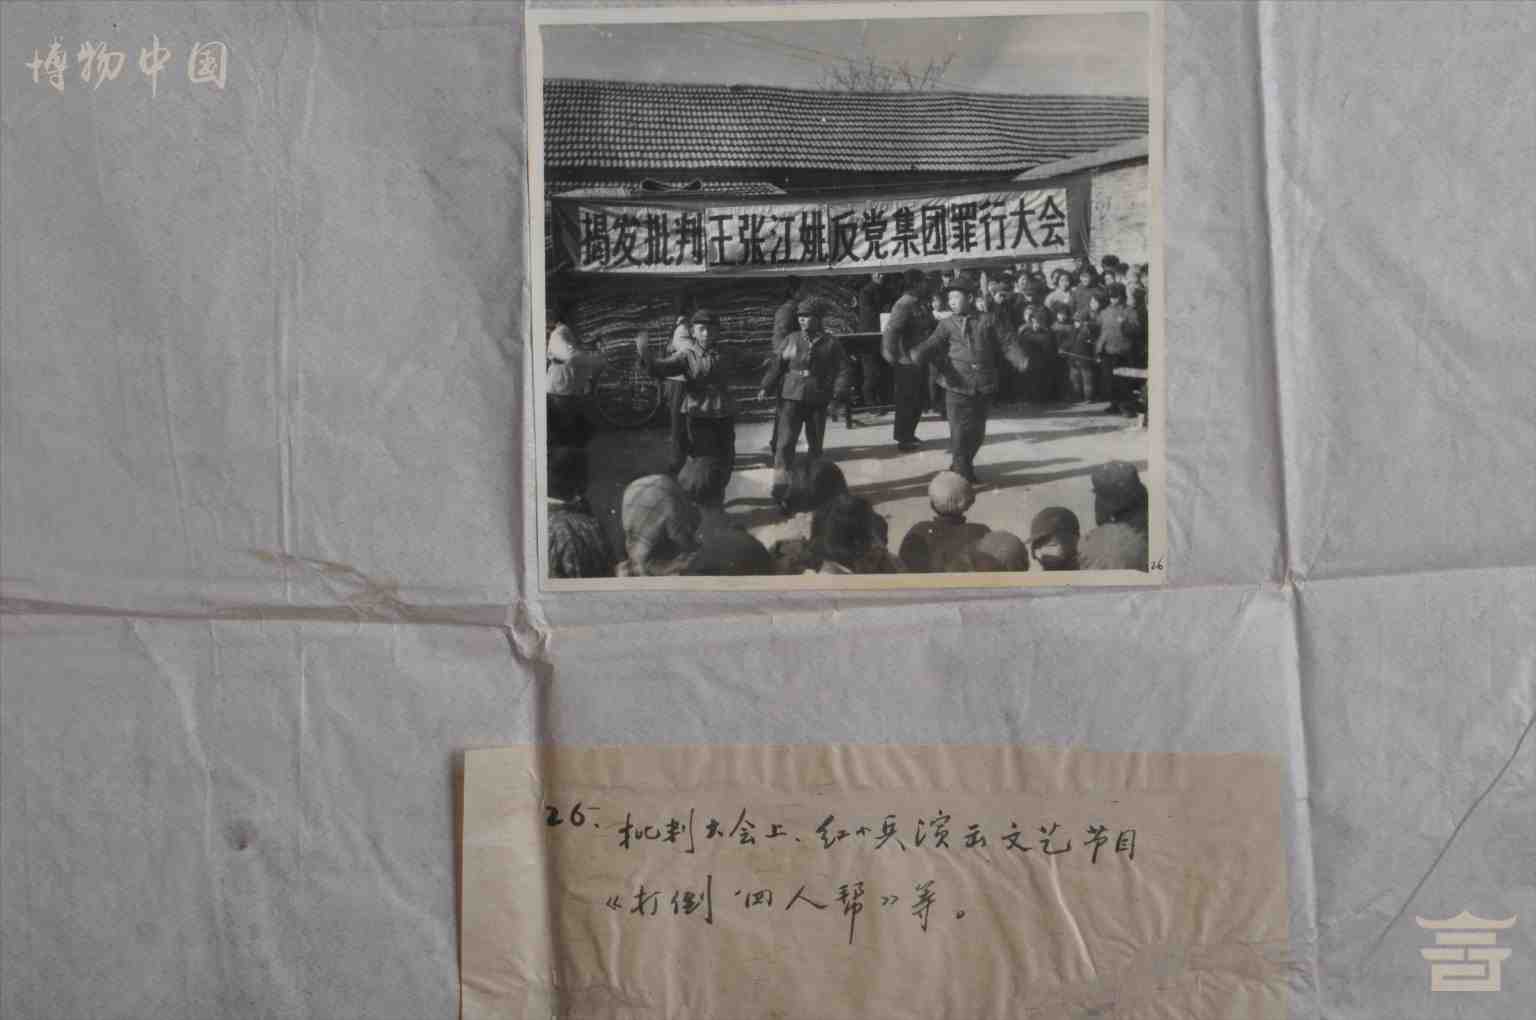 博物中国
揭发批判王张江姚反党集团罪行大会
26
26. 批判大会上、红小兵演出文艺节目
《打倒“四人帮》等。